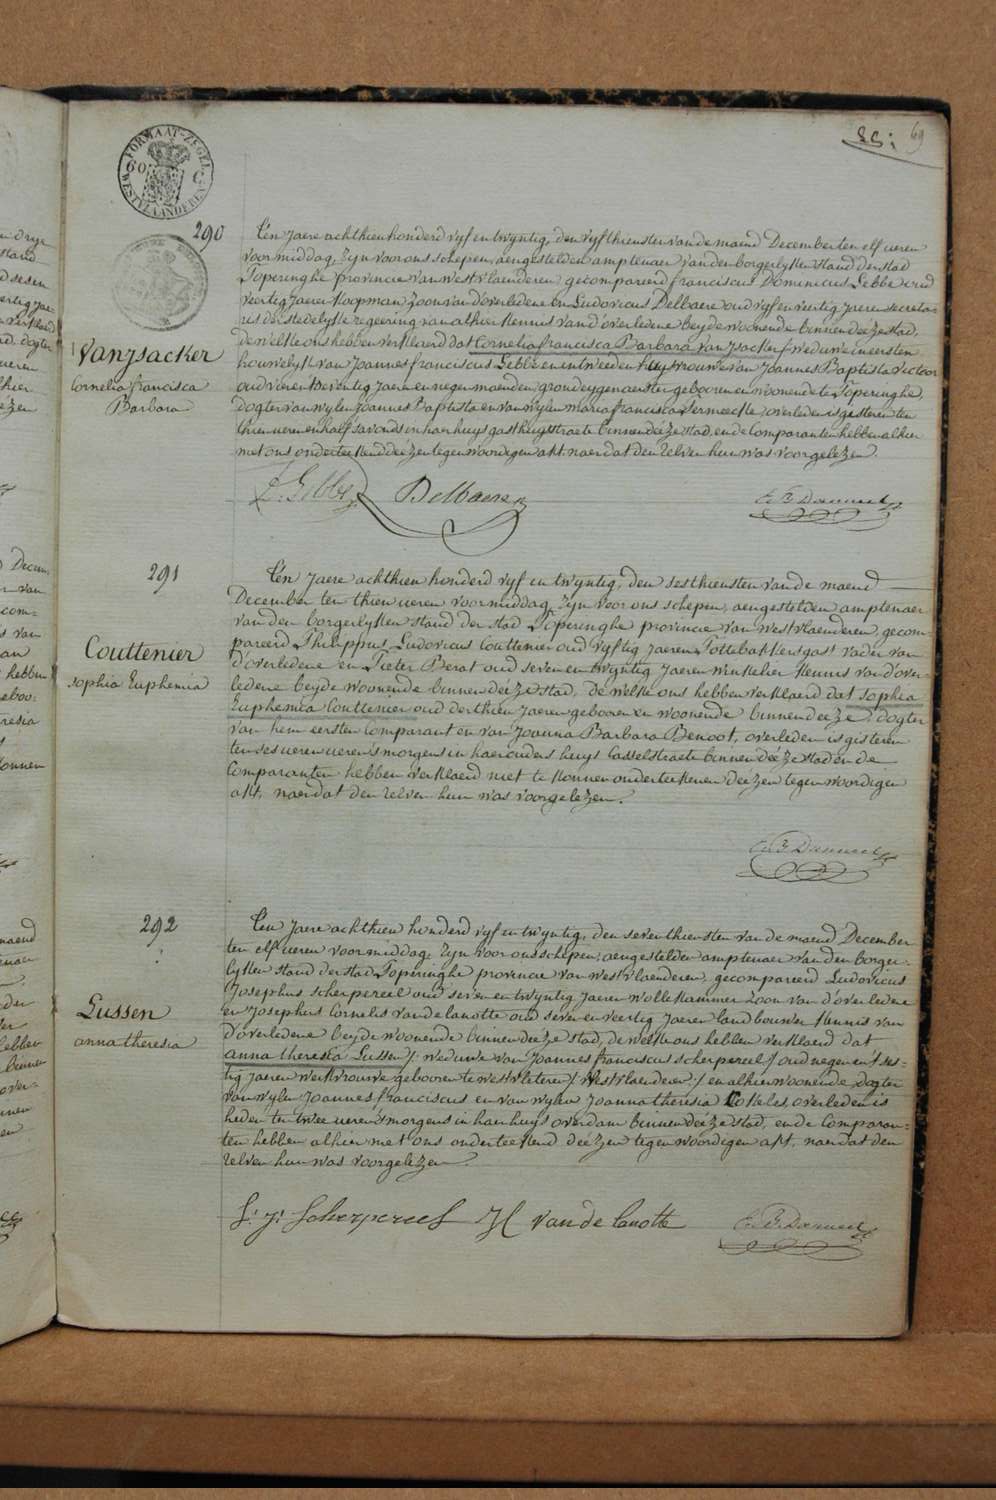 69
FORMAAT-ZEGEL
60 C
WESTVLAANDEREN
290
Vanysacker
Cornelia francisca
Barbara
Ten Jaere achthien honderd vyf en twyntig, den vyfthiensten van de maend December ten elf ueren
voormiddag, Zyn voor ons schepen, aengestelden amptenaer van den borgerlyken stand der stad
Poperinghe provincie van westvlaenderen gecompareerd franciscus Dominicus Lebbe oud
veertig Jaeren Koopman Zoon van d'overledene en Ludovicus Delbaere oud vyf en veertig Jaeren secreta-
ris der stedelyke regeering van alhier Kennis van d'overledene beyde woonende binnen deéze stad,
de welke ons hebben verklaerd dat Cornelia francisca Barbara Van Ysacker /: weduwe in eersten
houwelyk van Joannes franciscus Lebbe en in tweeden huysvrouwe van Joannes Baptista Rictoor
oud vier en seventig Jaeren en negen maenden, grondeygenaerster gebooren en woonende te Poperinghe,
dogter van wylen Joannes Baptista en van wylen maria francisca Vermeille, overleden is gisteren ten
thien ueren en half s'avonds in haer huys gasthuysstraete binnen deéze stad, en de Comparanten hebben alhier
met ons onderteekend deézen tegenwoordigen akt, naer dat den Zelven hun was voorgelezen.
F. Lebbe Delbaere
291
Couttenier
sophia Euphemia
Ten Jaere achthien honderd vyf en twyntig, den sesthiensten van de maend
December ten thien ueren voormiddag, Zyn voor ons schepen, aengestelden amptenaer
van den borgerlyken stand der stad Poperinghe provincie van westvlaenderen, gecom-
pareerd Philippus Ludovicus Couttenier oud vyftig Jaeren Pottebakkersgast vader van
d'overledene en Pieter Berat oud seven en twyntig Jaeren winkelier Kennis van d'over-
ledene beyde woonende binnen deéze stad, de welke ons hebben verklaerd dat sophia
Euphemia Couttenier oud derthien Jaeren gebooren en woonende binnen deéze, dogter
van hem eersten Comparant en van Joanna Barbara Benoot, overleden is gisteren
ten ses ueren ueren s'morgens in haer ouders huys Casselstraete binnen deéze stad en de
Comparanten hebben verklaerd niet te Konnen onderteekenen deézen tegenwoordigen
akt, naer dat den Zelven hun was voorgelezen.
292
Lussen
anna theresia
Ten Jaere achthien honderd vyf en twyntig, den seventhiensten van de maend December
ten elf ueren voormiddag, Zyn voor ons schepen, aengestelden amptenaer van den borger-
lyken stand der stad Poperinghe provincie van westvlaenderen, gecompareerd Ludovicus
Josephus scherpereel oud seven en twyntig Jaeren wollekammer Zoon van d'overledene
en Josephus Cornelis van de lanotte oud seven en veertig Jaeren landbouwer Kennis van
d'overledene beyde woonende binnen deéze stad, de welke ons hebben verklaerd dat
anna theresia Lussen /: weduwe van Joannes franciscus scherpereel :/ oud negen en ses-
tig Jaeren werkvrouwe gebooren te westvleteren /: Westvlaenderen :/ en alhier woonende, dogter
van wylen Joannes franciscus en van wylen Joanna theresia Cokelet, overleden is
heden ten twee ueren s'morgens in haer huys overdam binnen deéze stad, en de Comparan-
ten hebben alhier met ons onderteekend deézen tegenwoordigen akt, naer dat den
Zelven hun was voorgelezen.
L. J. Scherpereel J C van de lanotte